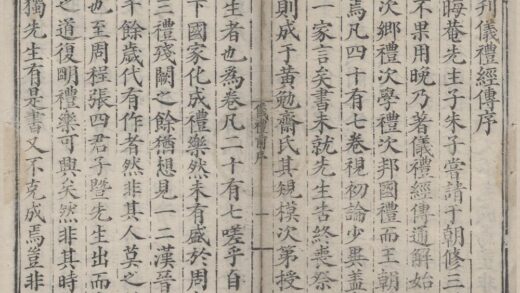 刋儀禮經傳序
晦菴先生子朱子嘗請于朝修三
不果用晚乃著儀禮經傳通解始
次鄉禮次學禮次邦國禮而王朝
焉凡四十有七卷視初論少異蓋
一家言矣書未就先生告終喪祭
則成于黄勉齋氏其規模次第授
儀禮前序
一
生者也為卷凡二十有七嗟乎自
下國家化成禮樂然未有盛於周
三禮殘闕之餘猶想見一二漢晉
千餘歲代有作者然非其人莫之
也至周程張四君子暨先生出而
之道復明禮樂可興矣然非其時
獨先生有是書又不克成焉豈非